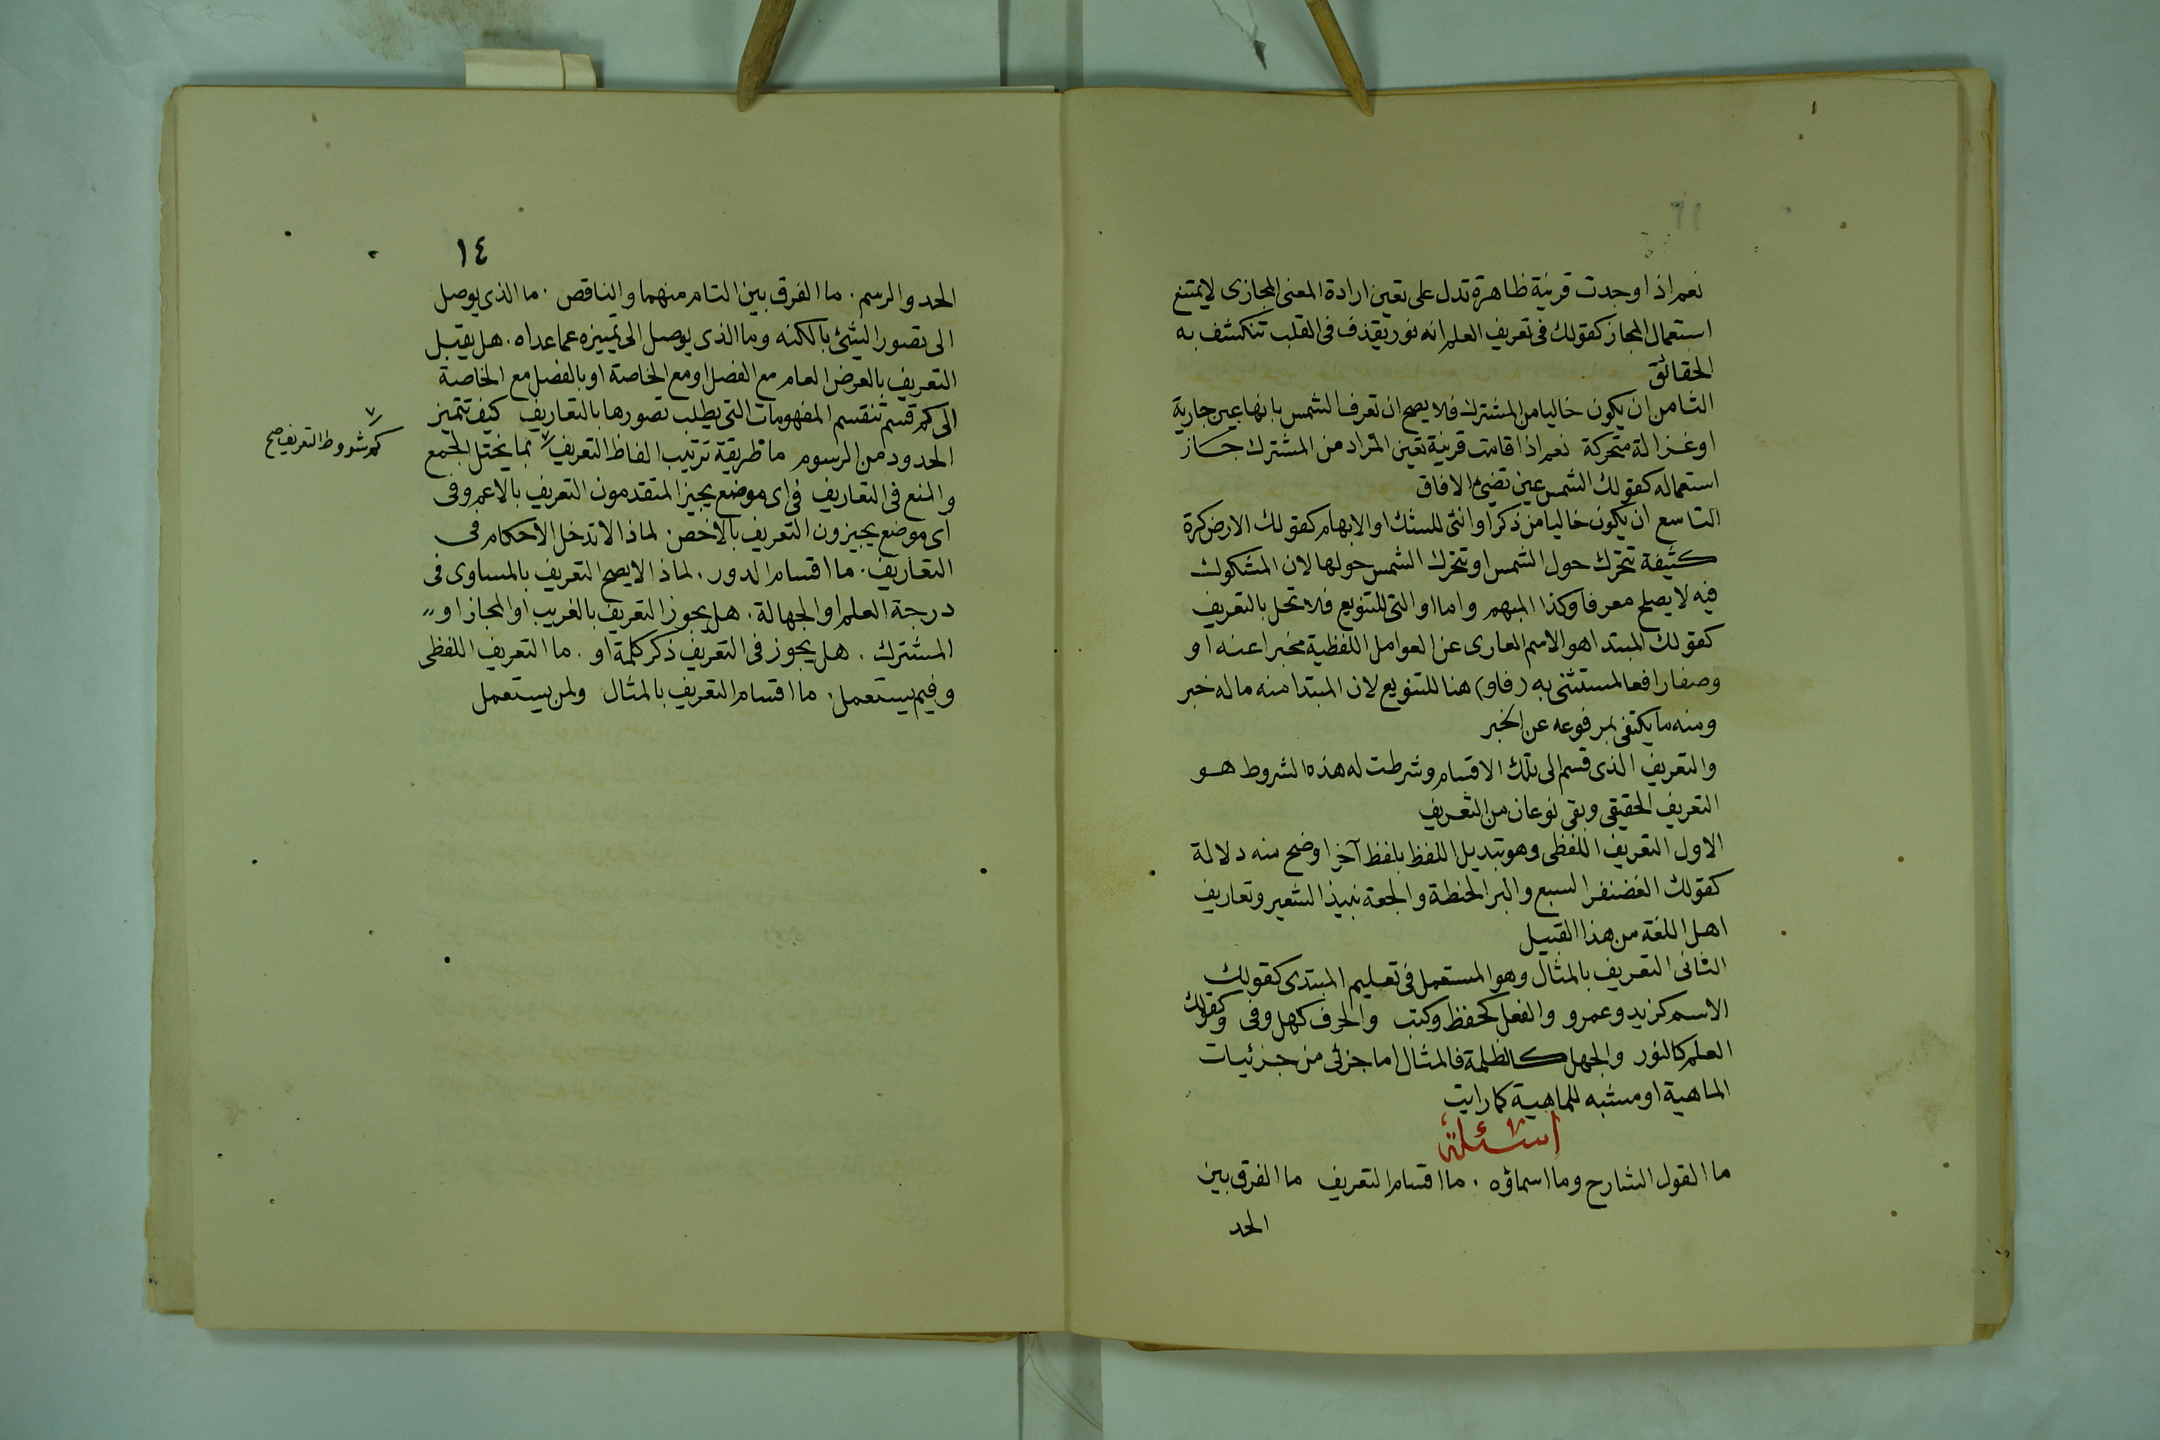 نعم اذا وجدت قرينة ظاهرة تدل على تعين ارادة المعنى المجازى لا يمتنع
استعمال المجاز كقولك فى تعريف العلم انه نور يقذف فى القلب تنكشف به
الحقائق
الثامن ان يكون خاليا من المشترك فلا يصح ان تعرف الشمس بانها عين جارية
او غزالة متحركة نعم اذا قامت قرينة تعين المراد من المشترك جاز
استعماله كقولك الشمس عين تضئ الافاق
التاسع ان يكون خاليا من ذكر او انتى للشك او الابهام كقولك الارض كرة
كثيفة تتحرك حول الشمس او تتحرك الشمس حولها لان المشكوك
فيه لا يصلح معرفا وكذا المبهم واما او التى للتنويع فلا تخل بالتعريف
كقولك المبتدا هو الاسم العارى عن العوامل اللفظية مخبرا عنه او
وصفا رافعا لمستثنى به (فاو) هنا للتنويع لان المبتدا منه ما له خبر
ومنه ما يكتفى بمرفوعه عن الخبر
والتعريف الذى قسم الى تلك الاقسام وشرطت له هذه الشروط هو
التعريف الحقيقى وبقى نوعان من التعريف
الاول التعريف اللفظى وهو تبديل اللفظ بلفظ آخر اوضح منه دلالة
كقولك الغضنفر السبع والبر الحنطة والجعة نبيذ الشعير وتعاريف
اهل اللغة من هذا القبيل
الثانى التعريف بالمثال وهو المستعمل فى تعليم المبتدى كقولك
الاسم كزيد وعمرو والفعل كحفظ وكتب والحرف كهل وفى وكقولك
العلم كالنور والجهل كالظلمة فالمثال اما جزئى من جزئيات
الماهية او مشبه للماهية كما رايت
اسئلة
ما القول الشارح وما اسماؤه . ما اقسام التعريف ما الفرق بين
الحد
١٤
الحد والرسم . ما الفرق بين التام منهما والناقص . ما الذى يوصل
الى تصور الشئ بالكنه وما الذى يوصل الى تمييزه عما عداه . هل يقبل
التعريف بالعرض العام مع الفصل او مع الخاصة او بالفصل مع الخاصة
الى كم قسم تنقسم المفهومات التى يطلب تصورها بالتعاريف كيف تتميز
الحدود من الرسوم ما طريقة ترتيب الفاظ التعريف ٧ بما يختل الجمع
كم شروط التعريف صح
والمنع فى التعاريف فى اى موضع يجيز المتقدمون التعريف بالاعم وفى
اى موضع يجيزون التعريف بالاخص . لماذا لا تدخل الاحكام فى
التعاريف . ما اقسام الدور . لماذا لا يصح التعريف بالمساوى فى
درجة العلم او الجهالة . هل يجوز التعريف بالغريب او المجاز او
المشترك . هل يجوز فى التعريف ذكر كلمة او . ما التعريف اللفظى
وفيم يستعمل . ما اقسام التعريف بالمثال ولمن يستعمل